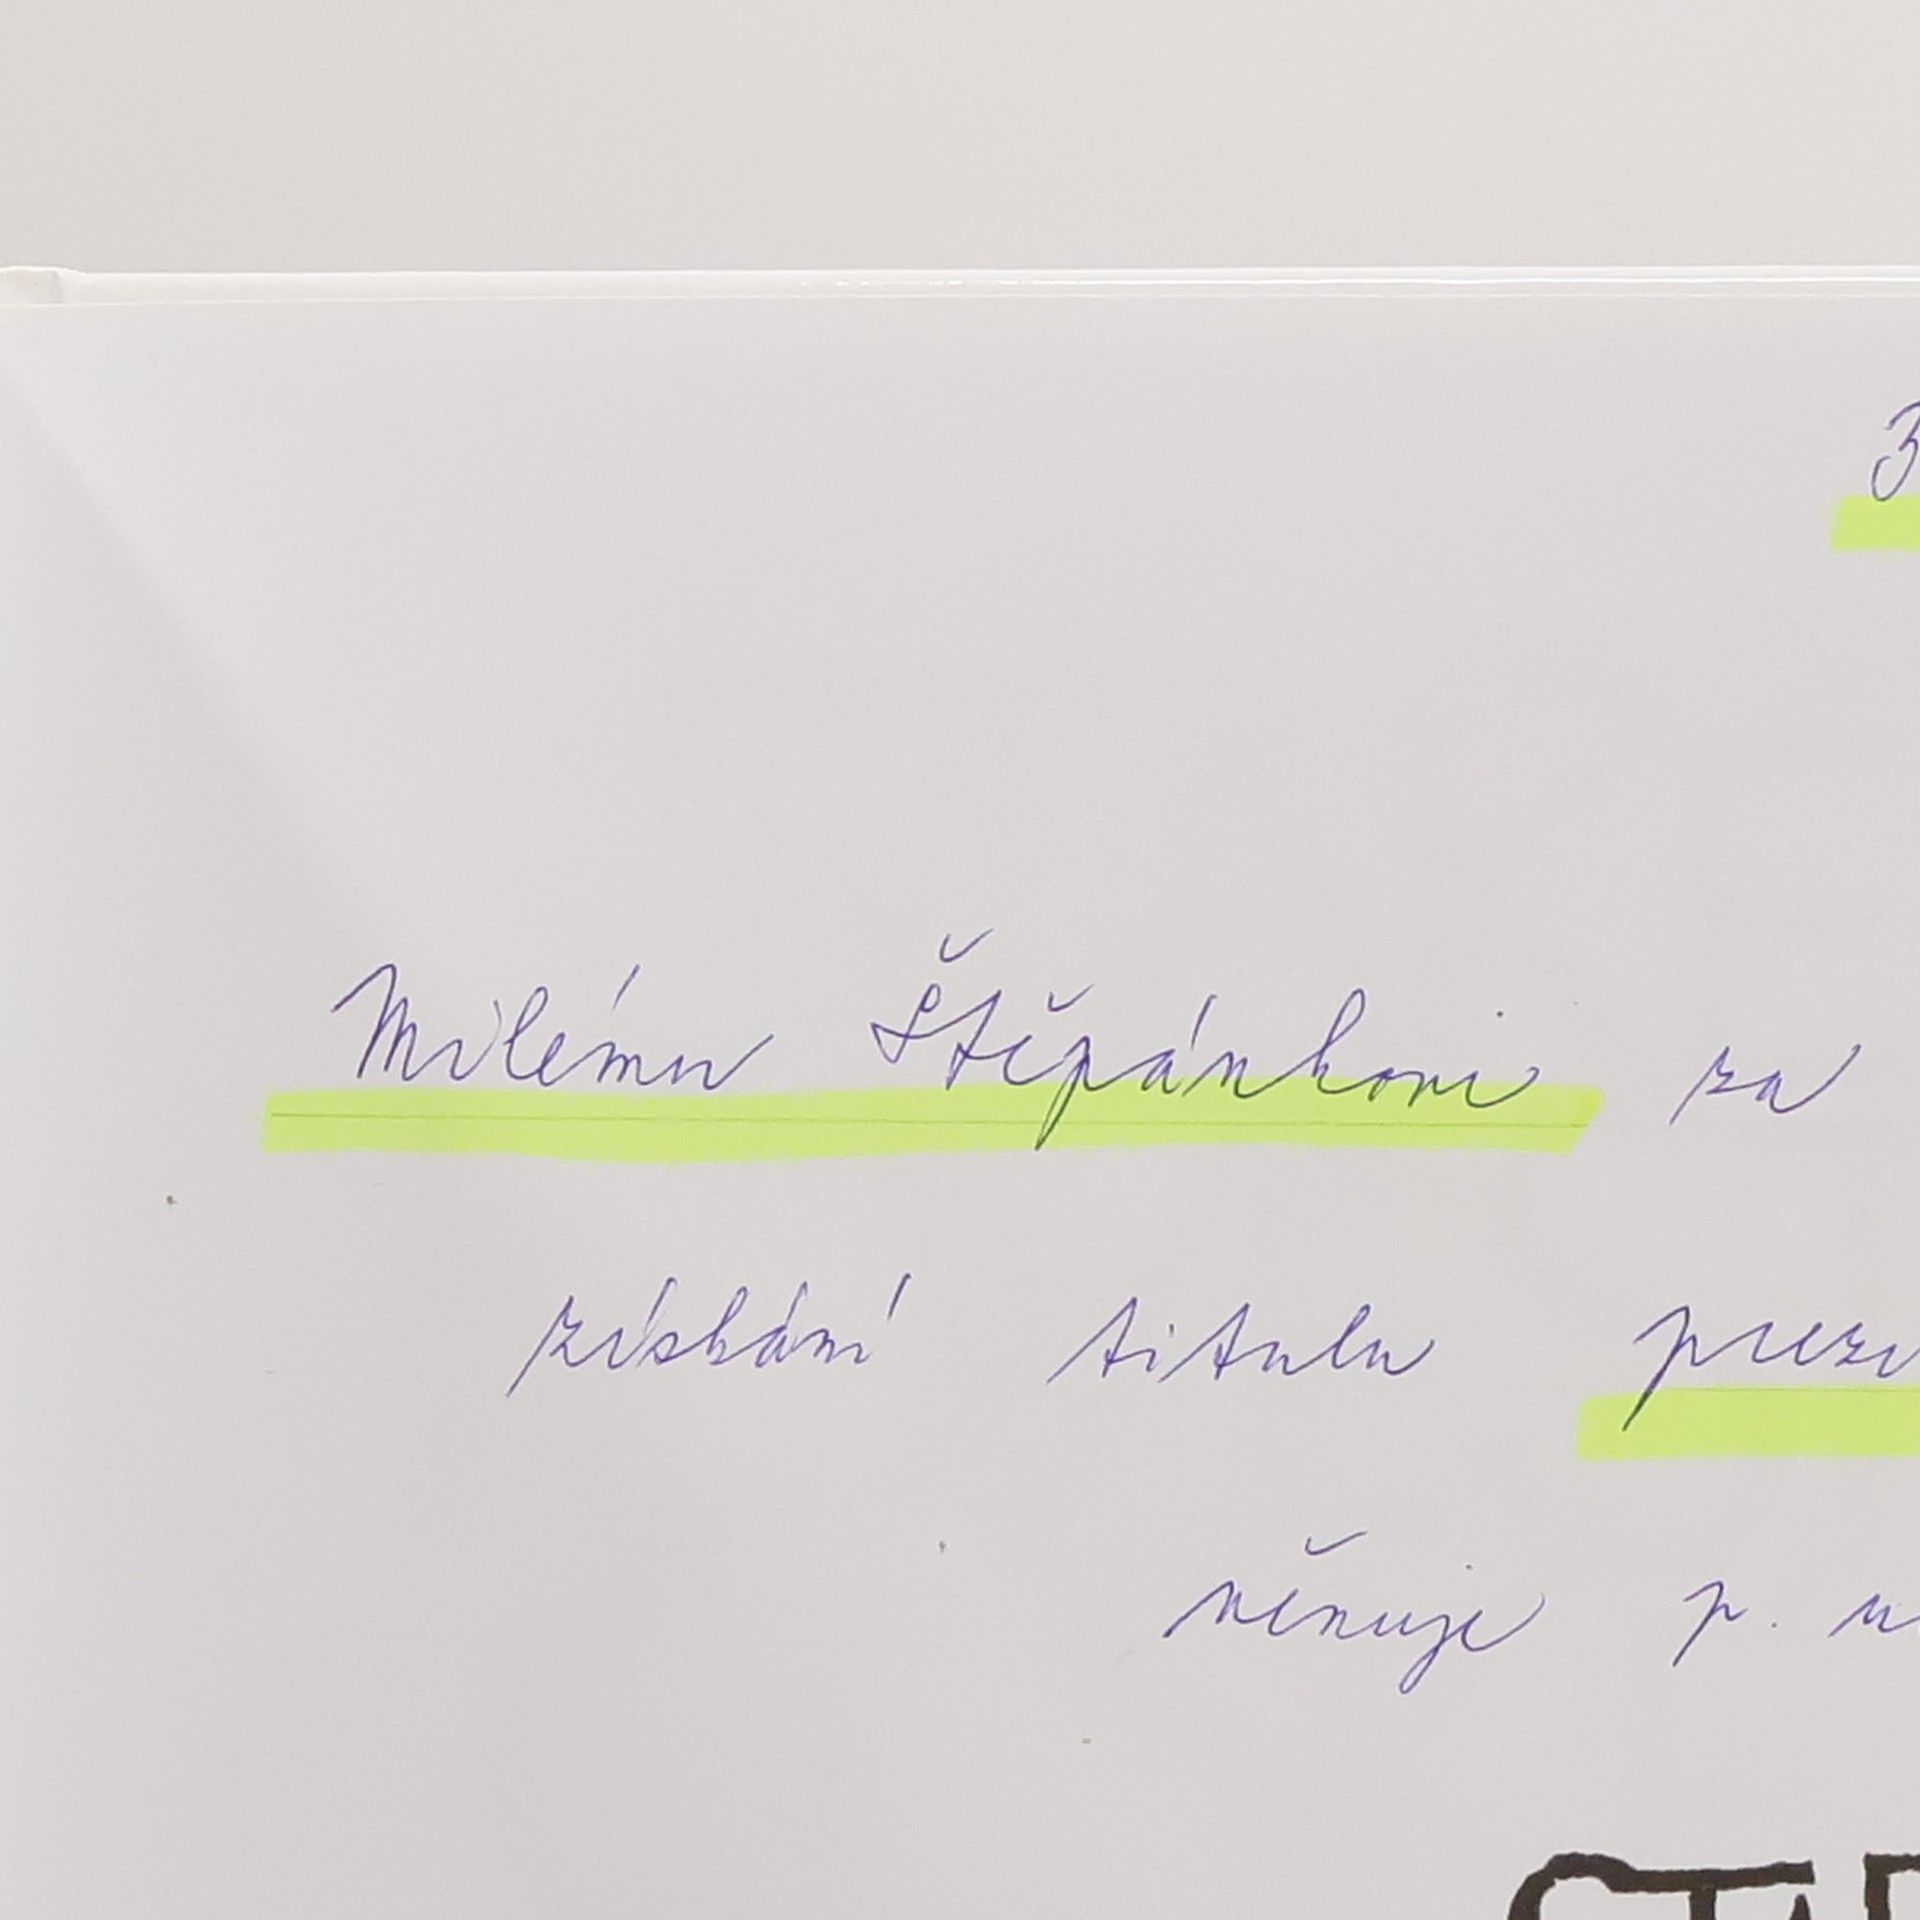 3
Milému Štěpánkovi za
získání titulu
věnuje p.